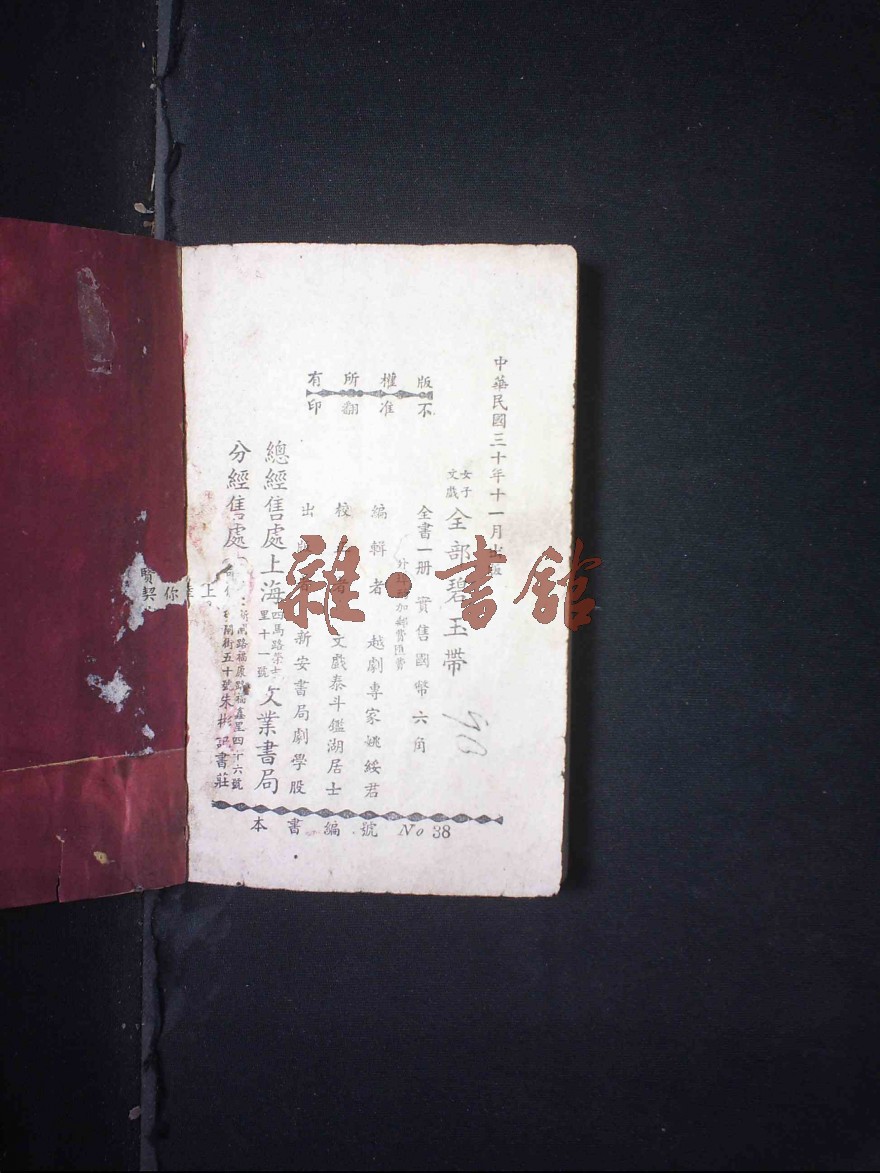 中華民國三十年十一月出
女子文戲 全部碧玉帶
全書一册 實售國幣六角
外埠酌加郵費匯費
編輯者 越劇專家姚綏君
校者 文戲泰斗鑑湖居士
出 新安書局劇學股
版權所有
不准翻印
總經售處上海四馬路榮吉里十一號文業書局
分經售處
新閘路福康路福嘉里四十六號
街五十號朱彬記書莊
本書編號 No 38
雜·書館